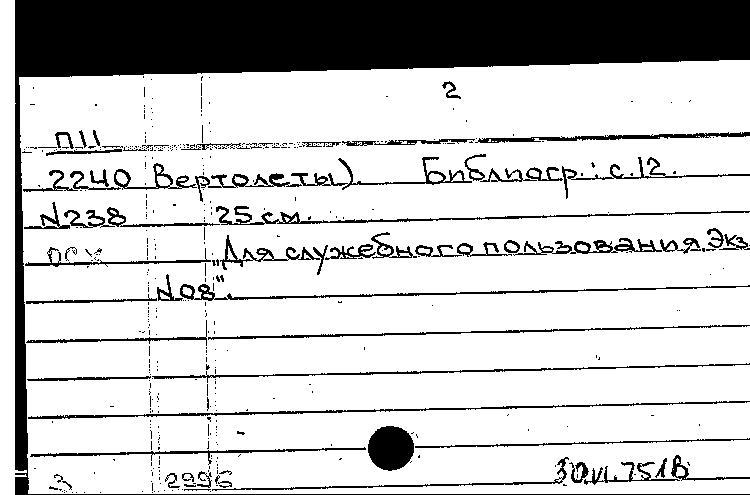 2
П11
2240 Вертолеты). Библиогр.: с.12.
N238 25 см.
ОСХ „Для служебного пользования. Экз.
N08".
3 2996 30.VI.75